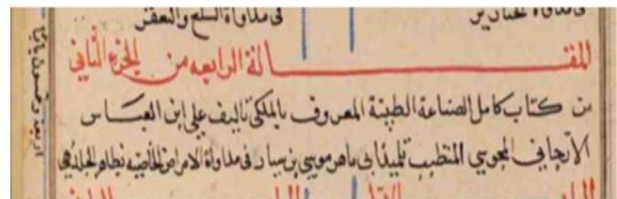 في مداواة الخنازير في مداواة السلع والعقد
المقـــالة الرابعه من الجزء الثاني
من كتاب كامل الصناعة الطبية المعروف بالملكي تاليف علي ابن العباس
الارجاني المجوسي المتطبب تلميذ ابي ماهر موسي بن سيار في مداواة الامراض الخاصيه بظاهر الجلد وهي
اربعة وخمسون بابا